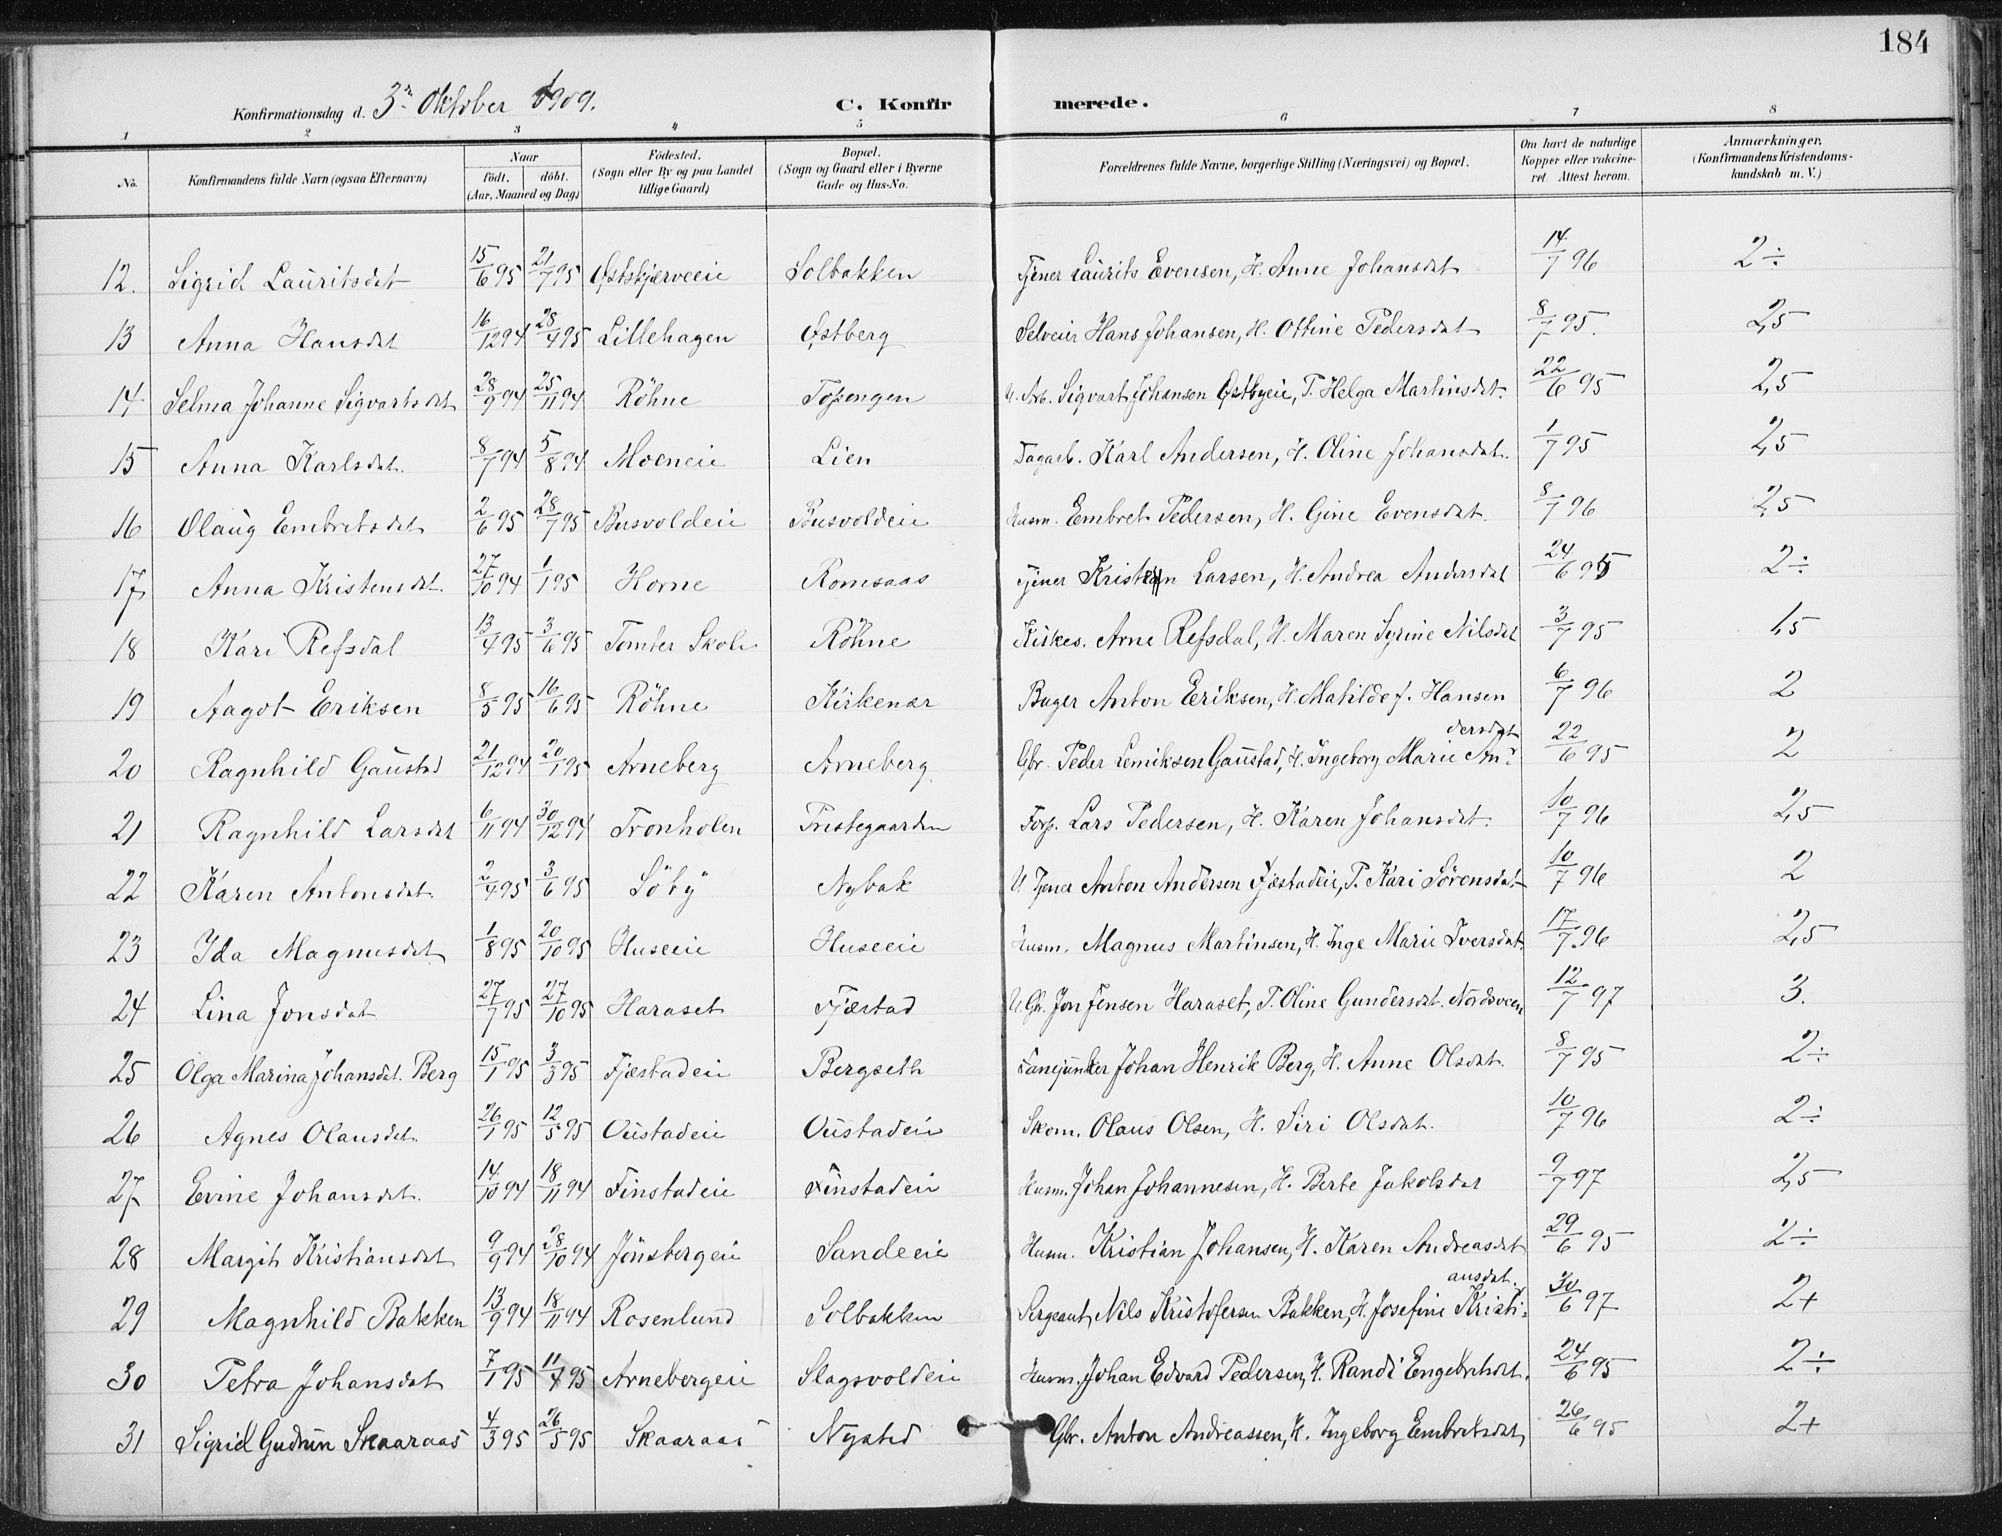 184
Konfirmationsdag d. 3die Oktober 1909. C. Konfir merede.
1 2 3 4 5 6 7 8
No. Konfirmandens fulde Navn (ogsaa Efternavn) Naar født. døbt. (Aar, Maaned og Dag) Fødested. (Sogn eller By og paa Landet tillige Gaard) Bopæl. (Sogn og Gaard eller i Byerne Gade og Hus-No. Forældrenes fulde Navne, borgerlige Stilling (Næringsvei) og Bopæl. Om havt de naturlige Kopper eller vakcineret. Attest herom. Anmærkninger. (Konfirmandens Kristendomskundskab m. V.)
12. Sigrid Lauritsdat 15/6 95 21/7 95 Østskjærveeie Solbakken Tjener Laurits Evensen, H. Anne Johansdat 14/7 96 2÷
13 Anna Hansdat 16/12 94 28/4 95 Lillehagen Østberg Selveier Hans Johansen, H. Ottine Pedersdat 8/7 95. 2,5
14 Selma Johanne Sigvartsdat 28/9 94 25/11 94 Röhne Topengen U. Arb. Sigvart Johansen Østbyeie, P. Helga Martinsdat. 22/6 95 2,5
15 Anna Karlsdat. 8/7 94 5/8 94 Moeneie Lien Dagarb. Karl Andersen, H. Oline Johansdat. 1/7 95 2,5
16 Olaug Embretsdat 2/6 95 28/7 95 Busvoldeie Busvoldeie Husm. Embret Pedersen, H. Gine Evensdat. 8/7 96 2,5
17 Anna Kristensdat. 27/10 94 1/1 95 Horne Romsaas Tjener Kristen Larsen, H. Andrea Andersdat 24/6 95 2÷
18 Kari Refsdal 13/4 95 3/6 95 Tomter Skole Röhne Kirkes. Arne Refsdal, H. Maren Syrine Nilsdat 3/7 95 1,5
19 Aagot Eriksen 8/5 95 16/6 95 Röhne Kirkenær Bager Anton Eriksen, H. Mathilde f. Hansen 6/7 96 2
20 Ragnhild Gaustad 21/12 94 20/1 95 Arneberg Arneberg Gbr. Peder Lemiksen Gaustad, H. Ingeborg Marie Andersdat 22/6 95 2
21 Ragnhild Larsdat 6/11 94 30/12 94 Tronholen Prestegaarden Forp. Lars Pedersen, H. Karen Johansdat. 10/7 96 2,5
22 Karen Antonsdat. 2/4 95 3/6 95 Söby Nybak U. Tjener Anton Andersen Fjæstadeie, P. Kari Sörensdat 10/7 96 2
23 Ida Magnusdat 1/8 95 20/10 95 Huseeie Huseeie Husm. Magnus Martinsen, H. Inge Marie Iversdat. 17/7 96 2,5
24 Lina Jonsdat 27/7 95 27/10 95 Haraset Fjæstad U. Gbr. Jon Jensen Haraset, P. Oline Gundersdat. Nordsveen 12/7 97 3.
25 Olga Marina Johansdat. Berg 15/1 95 3/3 95 Fjæstadeie Bergseth Fanejunker Johan Henrik Berg, H. Anne Olsdat. 8/7 95 2÷
26 Agnes Olausdat. 26/1 95 12/5 95 Oustadeie Oustadeie Skom. Olaus Olsen, H. Siri Olsdat. 10/7 96 2÷
27 Evine Johansdat. 14/10 94 18/11 94 Finstadeie Finstadeie Husm. Johan Johannesen, H. Berte Jakobsdat 9/7 97 2,5
28 Margit Kristiansdat 9/9 94 28/10 94 Jönsbergeie Sandeeie Husm. Kristian Johansen, H. Karen Andreasdat 29/6 95 2÷
29 Magnhild Bakken 13/9 94 18/11 94 Rosenlund Solbakken Sergeant Nils Kristofersen Bakken, H. Josefine Kristiansdat. 30/6 97 2+
30 Petra Johansdat 7/1 95 11/4 95 Arnebergeie Slagsvoldeie Husm. Johan Edvard Pedersen, H. Randi Engebretsdat. 24/6 95 2÷
31 Sigrid Gudrun Skaaraas 4/3 95 26/5 95 Skaaraas Nysted Gbr. Anton Andreassen, H. Ingeborg Embretsdat, 26/6 95 2+